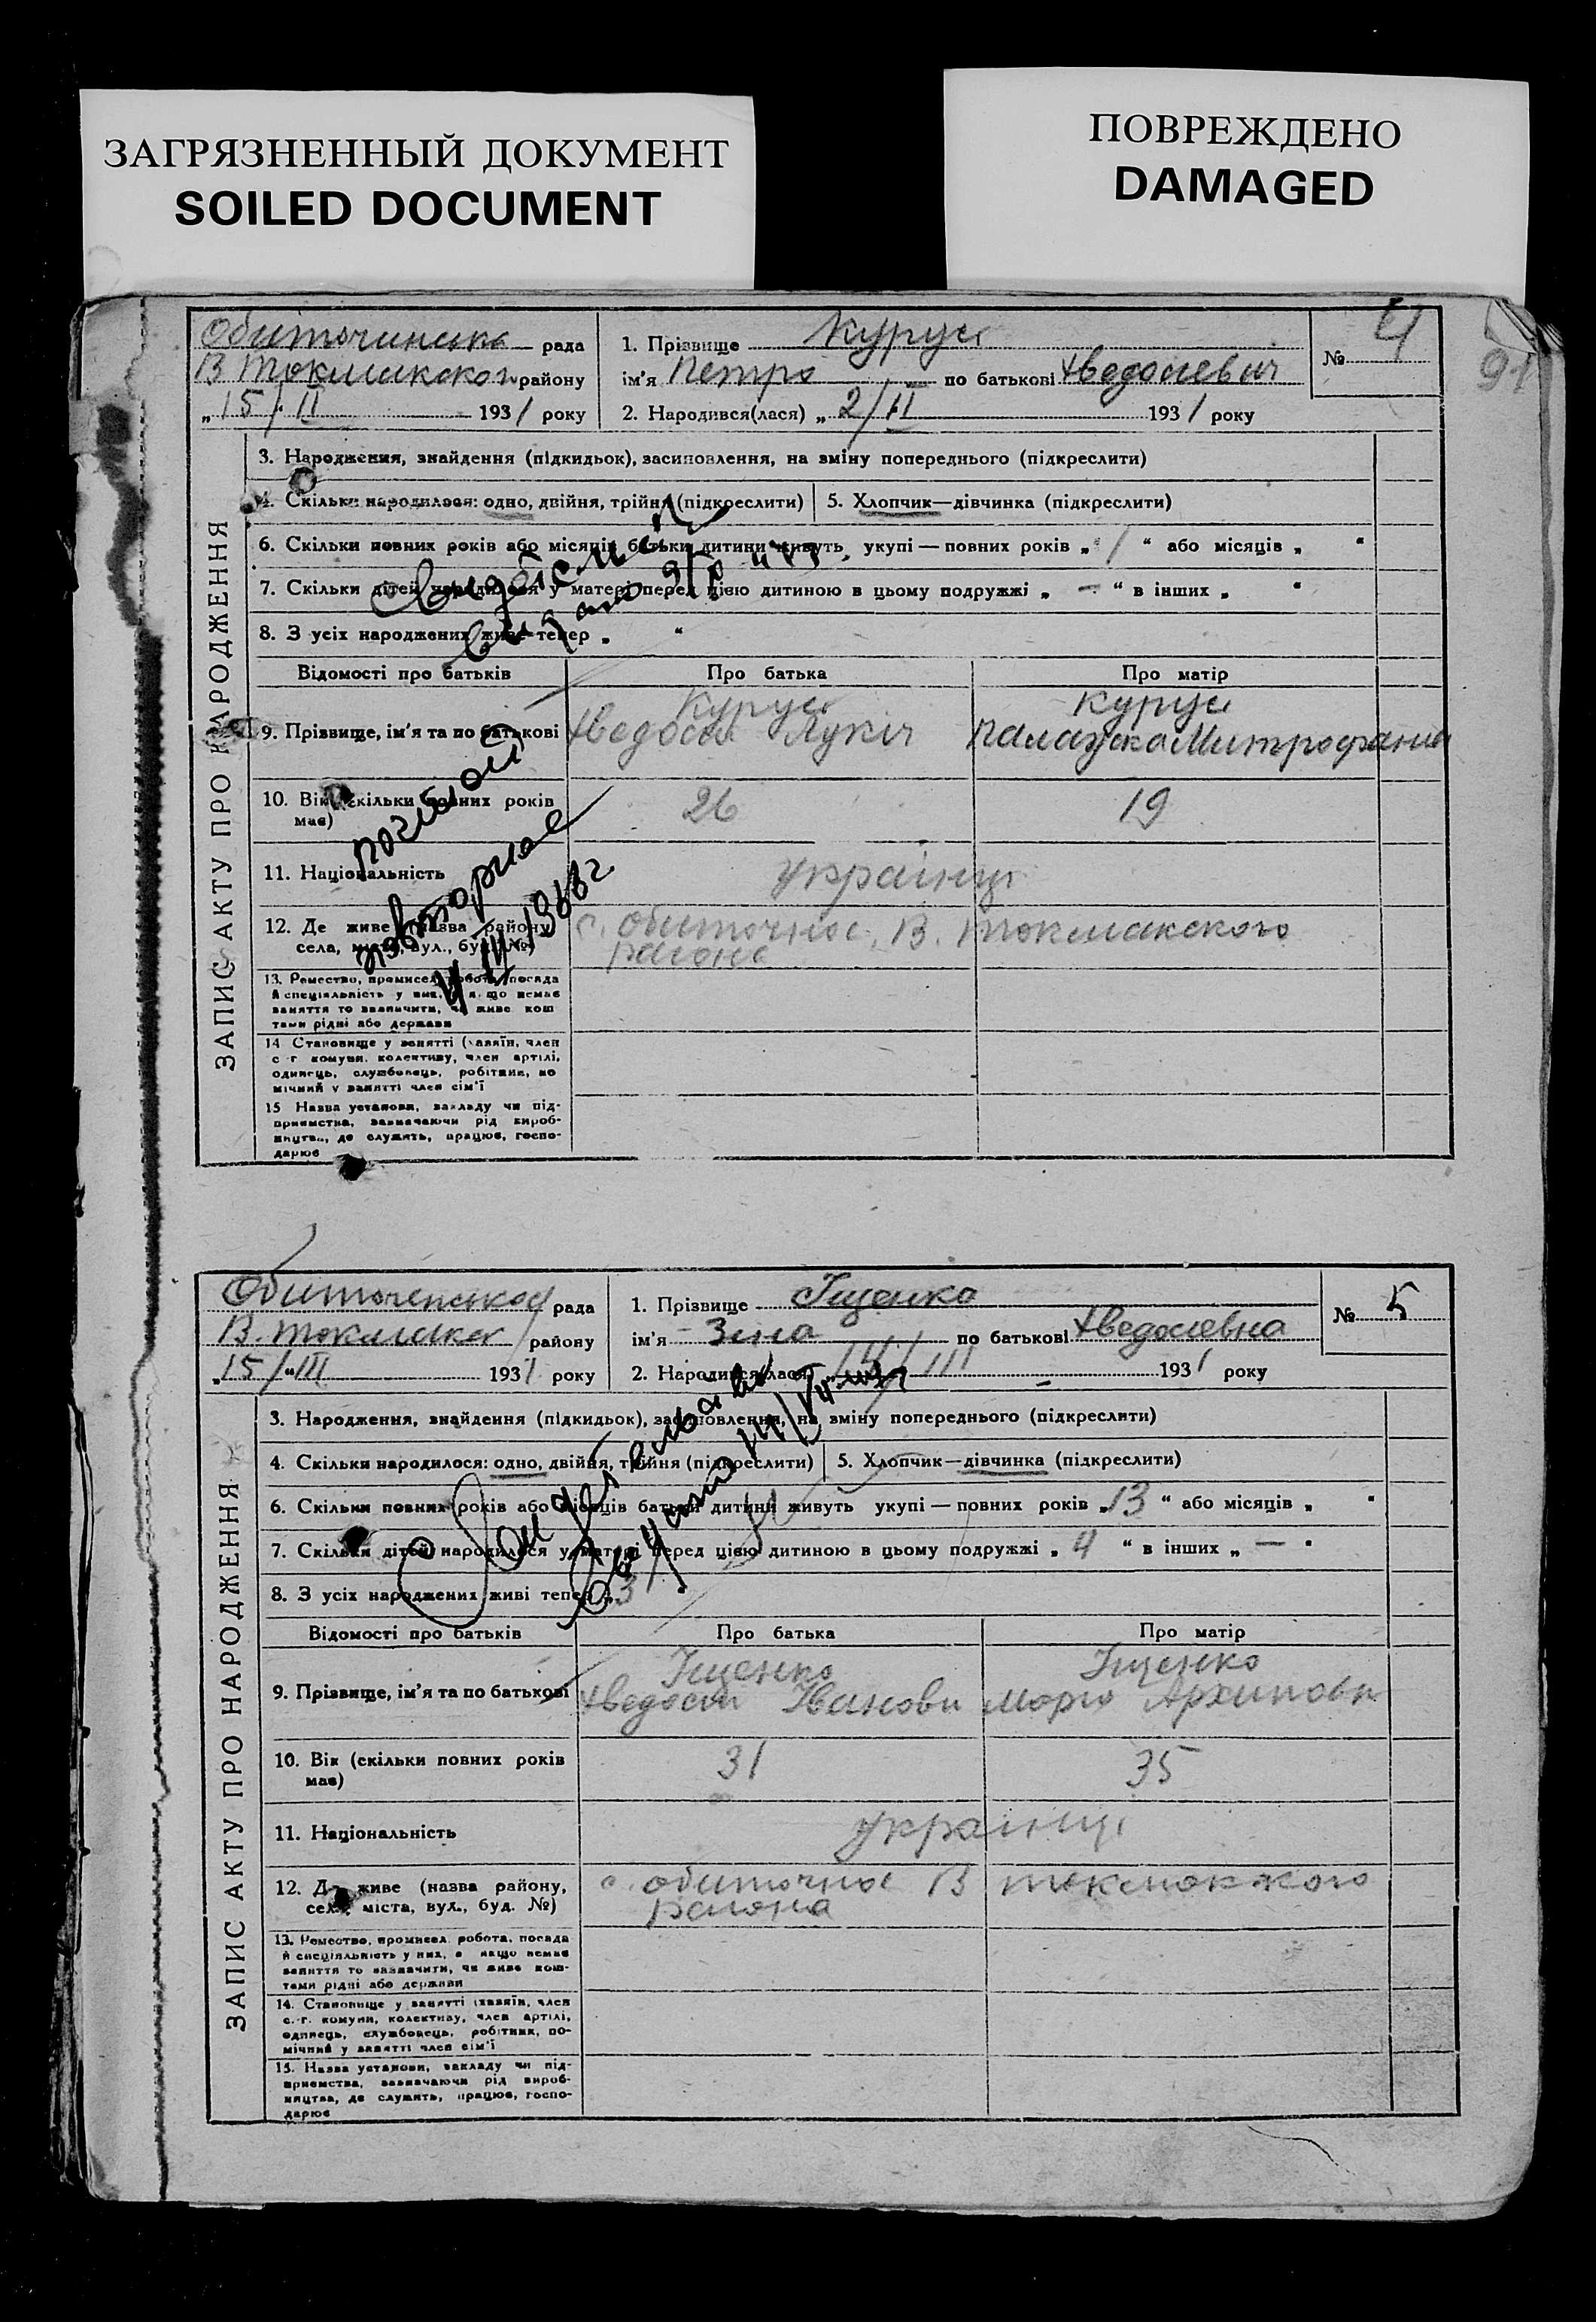 ЗАГРЯЗНЕННЫЙ ДОКУМЕНТ
SOILED DOCUMENT
ПОВРЕЖДЕНО
DAMAGED
рада
В Токмакског району
„15/II 1931 року
1. Прізвище
ім'я Петро по батькові Хведосіевич
2. Народився(лася) „2/II 1931 року
№ 4
91
ЗАПИС АКТУ ПРО НАРОДЖЕННЯ
3. Народження, знайдення (підкидьок), засиновлення, на зміну попереднього (підкреслити)
4. Скільки народилося: одно, двійня, трійня (підкреслити)
5. Хлопчик—дівчинка (підкреслити)
6. Скільки повних років або місяців батьки дитини живуть укупі — повних років „ 1 “ або місяців „ “
7. Скільки дітей народилося у матері перед цією дитиною в цьому подружжі „ — “ в інших „ “
8. З усіх народжених живе тепер „ “
Відомості про батьків
Про батька
Про матір
9. Прізвище, ім'я та по батькові
Хведосій Лукіч
10. Вік (скільки повних років має)
26
19
11. Національність
українці
12. Де живе (назва району, села, міста, вул., буд. №)
с. Обиточное, В. Токмакского
района
13. Ремество, промисел, робота, посада
й спеціяльність у них, а якщо немає
заняття то зазначити, чи живе кош
тами рідні або держави
14 Становище у занятті (хазяїн, член
с г комуни, колективу, член артілі,
одинець, службовець, робітник, по
мічний у занятті член сім'ї
15 Назва установи, закладу чи під-
приємства, зазначаючи рід вироб-
ництва, де служить, працює, госпо-
дарює
повторное
рада
району
„15/III 1931 року
1. Прізвище Іщенко
ім'я Зина по батькові Хведосіевна
2. Народився(лася) „14/III 1931 року
№ 5
ЗАПИС АКТУ ПРО НАРОДЖЕННЯ
3. Народження, знайдення (підкидьок), засиновлення, на зміну попереднього (підкреслити)
4. Скільки народилося: одно, двійня, трійня (підкреслити)
5. Хлопчик—дівчинка (підкреслити)
6. Скільки повних років або місяців батьки дитини живуть укупі — повних років „13 “ або місяців „ “
7. Скільки дітей народилося у матері перед цією дитиною в цьому подружжі „ 4 “ в інших „ — “
8. З усіх народжених живі тепер „3
Відомості про батьків
Про батька
Про матір
9. Прізвище, ім'я та по батькові
Іщенко
Іщенко
Хведосій Іванови
Архиповн
10. Вік (скільки повних років має)
31
35
11. Національність
українці
12. Де живе (назва району, села, міста, вул., буд. №)
с. Обиточное В
района
13. Ремество, промисел, робота, посада
й спеціяльність у них, а якщо немає
заняття то зазначити, чи живе кош-
тами рідні або держави
14. Становище у занятті (хазяїн, член
с.-г. комуни, колективу, член артілі,
одинець, службовець, робітник, по-
мічний у занятті член сім'ї
15. Назва установи, закладу чи під-
приємства, зазначаючи рід вироб-
ництва, де служить, працює, госпо-
дарює